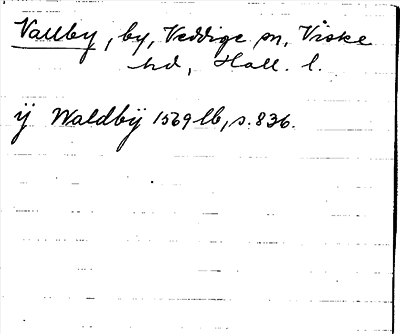 Vallby, by, Veddige sn, Viske
hd, Hall. l.
ÿ Waldbÿ 1569 lb, s. 836.